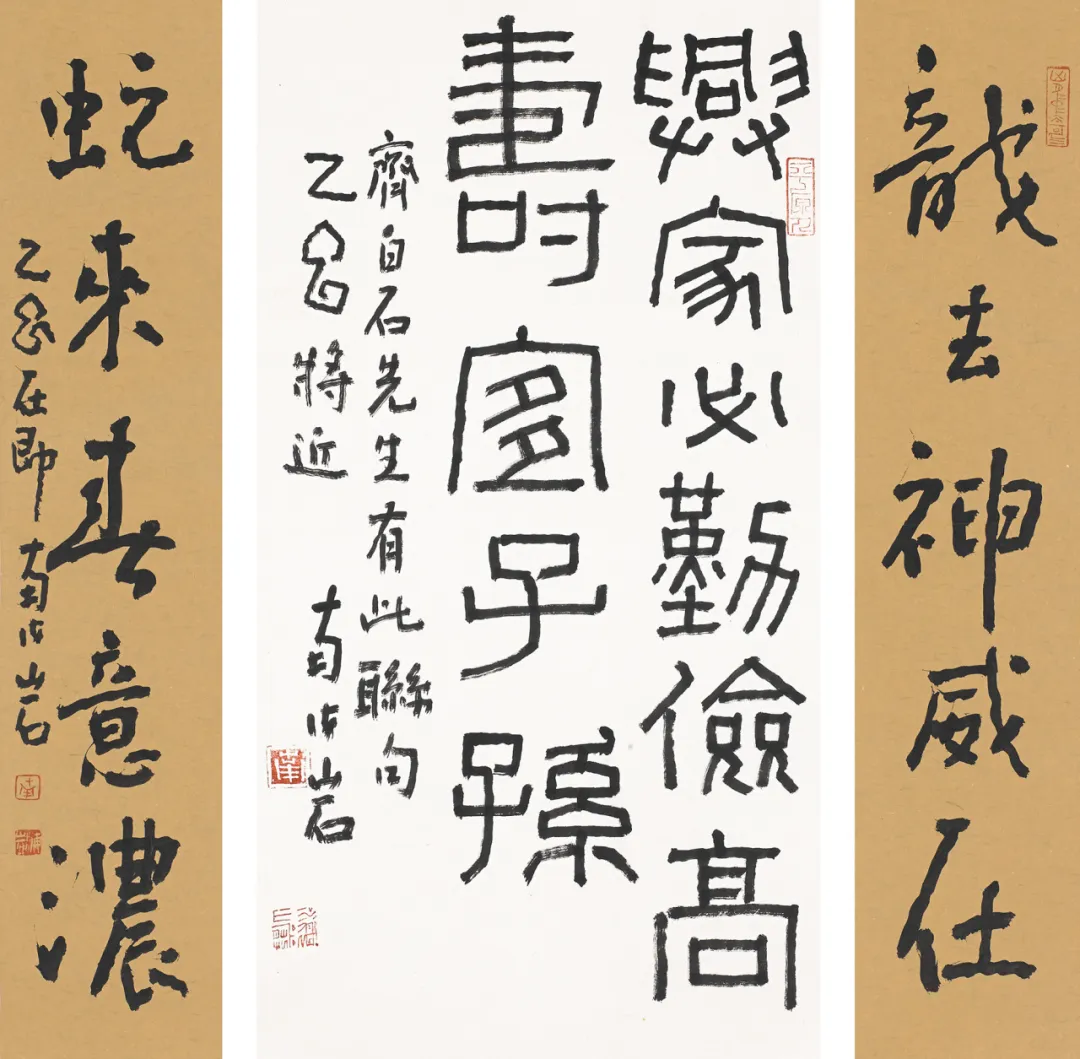 龍去神威在
興家必勤儉高
壽宜子孫
齊白石先生有此聯句
乙巳將近 南海岩
蛇來春意濃
乙巳在即 南海岩